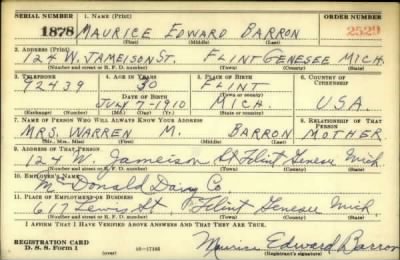 SERIAL NUMBER 1. NAME (Print) ORDER NUMBER
1878 MAURICE EDWARD BARRON 2529
(First) (Middle) (Last)
2. ADDRESS (Print)
124 W. JAMEISON ST. FLINT GENESEE MICH.
(Number and street or R. F. D. number) (Town) (County) (State)
3. TELEPHONE 4. AGE IN YEARS 5. PLACE OF BIRTH 6. COUNTRY OF CITIZENSHIP
92439 30 FLINT
DATE OF BIRTH (Town or county)
JULY 7-1910 MICH. U.S.A.
(Exchange) (Number) (Mo.) (Day) (Yr.) (State or country)
7. NAME OF PERSON WHO WILL ALWAYS KNOW YOUR ADDRESS 8. RELATIONSHIP OF THAT PERSON
MRS. WARREN M. BARRON MOTHER
(Mr., Mrs., Miss) (First) (Middle) (Last)
9. ADDRESS OF THAT PERSON
124 W. Jameison St Flint Genesee Mich
(Number and street or R. F. D. number) (Town) (County) (State)
10. EMPLOYER'S NAME
McDonald Dairy Co
11. PLACE OF EMPLOYMENT OR BUSINESS
617 Lewis St, Flint Genesee Mich
(Number and street or R. F. D. number) (Town) (County) (State)
I AFFIRM THAT I HAVE VERIFIED ABOVE ANSWERS AND THAT THEY ARE TRUE.
REGISTRATION CARD
D. S. S. Form 1 (over) 16-17105 Maurice Edward Barron
(Registrant's signature)